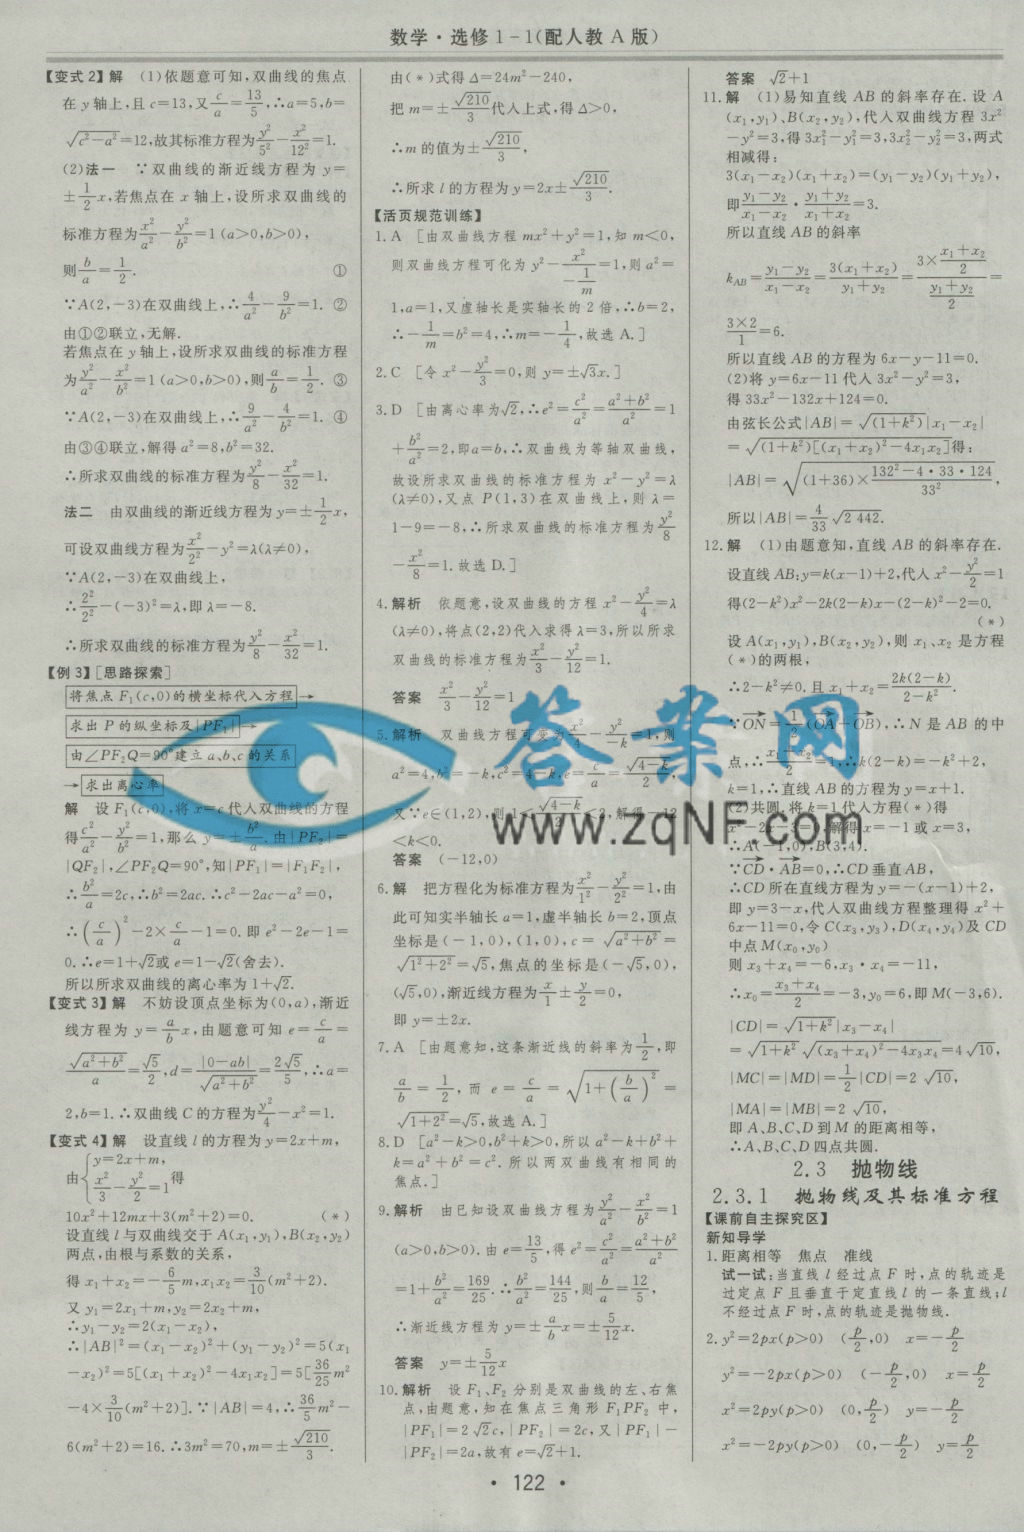 数学·选修1-1(配人教A版)
【变式2】解 (1)依题意可知,双曲线的焦点
在y轴上,且c=13,又c/a=13/5,∴a=5,b=
√(c²-a²)=12,故其标准方程为y²/5²-x²/12²=1.
(2)法一 ∵双曲线的渐近线方程为y=
±1/2x,若焦点在x轴上,设所求双曲线的
标准方程为x²/a²-y²/b²=1(a>0,b>0),
则b/a=1/2. ①
∵A(2,-3)在双曲线上,∴4/a²-9/b²=1. ②
由①②联立,无解.
若焦点在y轴上,设所求双曲线的标准方程
为y²/a²-x²/b²=1(a>0,b>0),则a/b=1/2. ③
∵A(2,-3)在双曲线上,∴9/a²-4/b²=1. ④
由③④联立,解得a²=8,b²=32.
∴所求双曲线的标准方程为y²/8-x²/32=1.
法二 由双曲线的渐近线方程为y=±1/2x,
可设双曲线方程为x²/2²-y²=λ(λ≠0),
∵A(2,-3)在双曲线上,
∴2²/2²-(-3)²=λ,即λ=-8.
∴所求双曲线的标准方程为y²/8-x²/32=1.
【例3】[思路探索]
将焦点F₁(c,0)的横坐标代入方程→
求出P的纵坐标及|PF₁|→
由∠PF₂Q=90°建立a、b、c的关系
→求出离心率
解 设F₁(c,0),将x=c代入双曲线的方程
得c²/a²-y²/b²=1,那么y=±b²/a.由|PF₂|=
|QF₂|,∠PF₂Q=90°,知|PF₁|=|F₁F₂|,
∴b²/a=2c,∴b²=2ac.∴c²-2ac-a²=0,
∴(c/a)²-2×c/a-1=0.即e²-2e-1=
0.∴e=1+√2或e=1-√2(舍去).
所以所求双曲线的离心率为1+√2.
【变式3】解 不妨设顶点坐标为(0,a),渐近
线方程为y=a/bx,由题意可知e=c/a=
√(a²+b²)/a=√5/2,d=|0-ab|/√(a²+b²)=2√5/5,∴a=
2,b=1.∴双曲线C的方程为y²/4-x²=1.
【变式4】解 设直线l的方程为y=2x+m,
由{y=2x+m,
x²/3-y²/2=1得
10x²+12mx+3(m²+2)=0. (*)
设直线l与双曲线交于A(x₁,y₁),B(x₂,y₂)
两点,由根与系数的关系,
得x₁+x₂=-6/5m,x₁x₂=3/10(m²+2).
又y₁=2x₁+m,y₂=2x₂+m,
∴y₁-y₂=2(x₁-x₂),
∴|AB|²=(x₁-x₂)²+(y₁-y₂)²=5(x₁
-x₂)²=5[(x₁+x₂)²-4x₁x₂]=5[36/25m²
-4×3/10(m²+2)].∵|AB|=4,∴36/5m²-
6(m²+2)=16.∴3m²=70,m=±√210/3.
由(*)式得Δ=24m²-240,
把m=±√210/3代入上式,得Δ>0,
∴m的值为±√210/3,
∴所求l的方程为y=2x±√210/3.
【活页规范训练】
1.A [由双曲线方程mx²+y²=1,知m<0,
则双曲线方程可化为y²-x²/(-1/m)=1,则a²=
1,a=1,又虚轴长是实轴长的2倍,∴b=2,
∴-1/m=b²=4,∴m=-1/4,故选A.]
2.C [令x²-y²/3=0,则y=±√3x.]
3.D [由离心率为√2,∴e²=c²/a²=(a²+b²)/a²=1
+b²/a²=2,即a=b,∴双曲线为等轴双曲线,
故设所求双曲线的标准方程为x²-y²=λ
(λ≠0),又点P(1,3)在双曲线上,则λ=
1-9=-8,∴所求双曲线的标准方程为y²/8
-x²/8=1.故选D.]
4.解析 依题意,设双曲线的方程x²-y²/4=λ
(λ≠0),将点(2,2)代入求得λ=3,所以所求
双曲线的标准方程为x²/3-y²/12=1.
答案 x²/3-y²/12=1
5.解析 双曲线方程可变为x²/4-y²/-k=1,则
a²=4,b²=-k,c²=4-k,e=c/a=√(4-k)/2,
又∵e∈(1,2),则1<√(4-k)/2<2,解得-12
<k<0.
答案 (-12,0)
6.解 把方程化为标准方程为x²/1²-y²/2²=1,由
此可知实半轴长a=1,虚半轴长b=2,顶点
坐标是(-1,0),(1,0),c=√(a²+b²)=
√(1²+2²)=√5,焦点的坐标是(-√5,0),
(√5,0),渐近线方程为x/1±y/2=0,
即y=±2x.
7.A [由题意知,这条渐近线的斜率为1/2,即
a/b=1/2,而e=c/a=√(1+(b/a)²)=
√(1+2²)=√5,故选A.]
8.D [a²-k>0,b²+k>0,所以a²-k+b²+
k=a²+b²=c².所以两双曲线有相同的
焦点.]
9.解析 由已知设双曲线方程为y²/a²-x²/b²=1
(a>0,b>0).由e=13/5,得e²=c²/a²=(a²+b²)/a²
=1+b²/a²=169/25.∴b²/a²=144/25,则b/a=12/5,
∴渐近线方程为y=±a/bx=±5/12x.
答案 y=±5/12x
10.解析 设F₁、F₂分别是双曲线的左、右焦
点,由题意,知在焦点三角形F₁PF₂中,
|PF₁|=2√2c,|PF₂|=2c,又|PF₁|-
|PF₂|=2a,故有e=√2+1.
答案 √2+1
11.解 (1)易知直线AB的斜率存在.设A
(x₁,y₁)、B(x₂,y₂),代入双曲线方程3x²
-y²=3,得3x₁²-y₁²=3,3x₂²-y₂²=3,两式
相减得:
3(x₁-x₂)(x₁+x₂)=(y₁-y₂)(y₁+y₂),
即(y₁-y₂)/(x₁-x₂)·(y₁+y₂)/(x₁+x₂)=3.
所以直线AB的斜率
k_AB=(y₁-y₂)/(x₁-x₂)=3(x₁+x₂)/(y₁+y₂)=(3×(x₁+x₂)/2)/((y₁+y₂)/2)=
(3×2)/1=6.
所以直线AB的方程为6x-y-11=0.
(2)将y=6x-11代入3x²-y²=3,
得33x²-132x+124=0.
由弦长公式|AB|=√(1+k²)|x₁-x₂|
=√((1+k²)[(x₁+x₂)²-4x₁x₂])得:
|AB|=√((1+36)×(132²-4·33·124)/33²),
所以|AB|=4/33√2 442.
12.解 (1)由题意知,直线AB的斜率存在.
设直线AB:y=k(x-1)+2,代入x²-y²/2=1
得(2-k²)x²-2k(2-k)x-(2-k)²-2=0.
(*)
设A(x₁,y₁),B(x₂,y₂),则x₁、x₂是方程
(*)的两根,
∴2-k²≠0.且x₁+x₂=2k(2-k)/(2-k²).
∵ON=1/2(OA+OB),∴N是AB的中
点,∴(x₁+x₂)/2=1,∴k(2-k)=-k²+2,
k=1,∴直线AB的方程为y=x+1.
(2)共圆.将k=1代入方程(*)得
x²-2x-3=0,解得x=-1或x=3,
∴A(-1,0),B(3,4).
∵CD·AB=0,∴CD垂直AB,
∴CD所在直线方程为y=-(x-1)+2,
即y=3-x,代入双曲线方程整理得x²+
6x-11=0,令C(x₃,y₃),D(x₄,y₄)及CD
中点M(x₀,y₀)
则x₃+x₄=-6,x₃·x₄=-11,
∴x₀=(x₃+x₄)/2=-3,y₀=6,即M(-3,6).
|CD|=√(1+k²)|x₃-x₄|
=√(1+k²)√((x₃+x₄)²-4x₃x₄)=4√10,
|MC|=|MD|=1/2|CD|=2√10,
|MA|=|MB|=2√10,
即A、B、C、D到M的距离相等,
∴A、B、C、D四点共圆.
2.3 抛物线
2.3.1 抛物线及其标准方程
【课前自主探究区】
新知导学
1.距离相等 焦点 准线
试一试:当直线l经过点F时,点的轨迹是
过定点F且垂直于定直线l的一条直线;l
不经过点F时,点的轨迹是抛物线.
2.y²=2px(p>0) (p/2,0) x=-p/2
y²=-2px(p>0) (-p/2,0) x=p/2
x²=2py(p>0) (0,p/2) y=-p/2
x²=-2py(p>0) (0,-p/2) y=p/2
·122·
答案网
www.zqNF.com